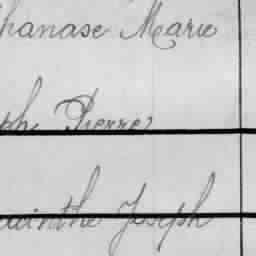 hanase Marie
ph Pierre
acinthe Joseph